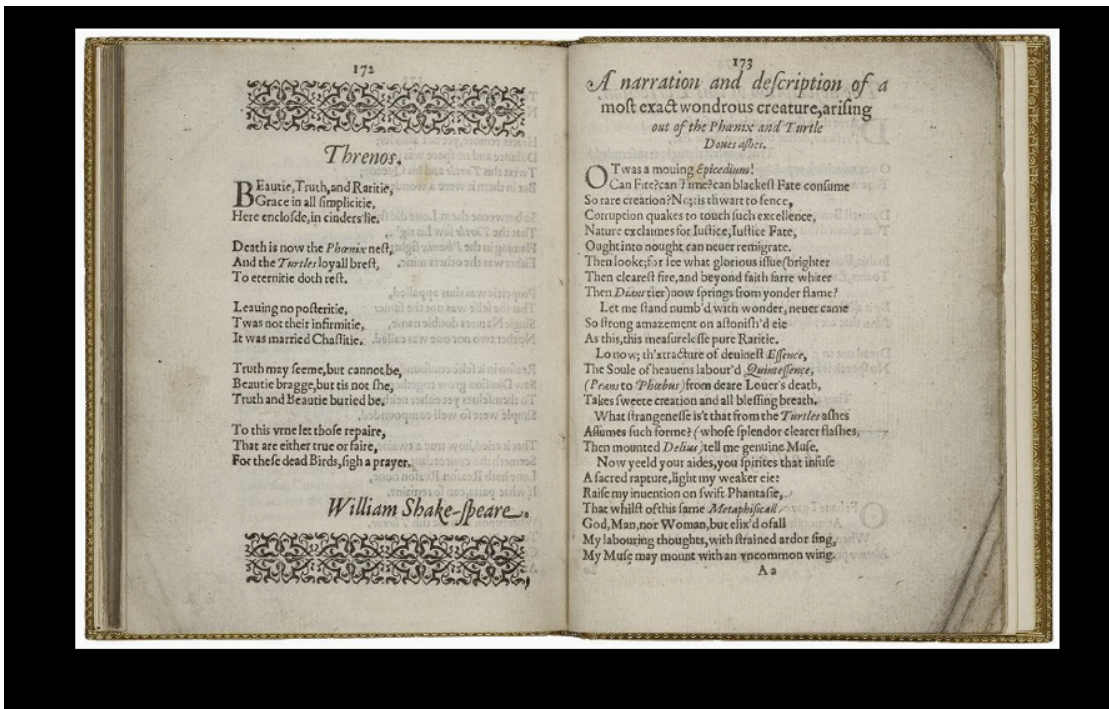 172
Threnos.
BEautie, Truth, and Raritie,
Grace in all ſimplicitie,
Here encloſde, in cinders lie.
Death is now the Phœnix neſt,
And the Turtles loyall breſt,
To eternitie doth reſt.
Leauing no poſteritie,
Twas not their infirmitie,
It was married Chaſtitie.
Truth may ſeeme, but cannot be,
Beautie bragge, but tis not ſhe,
Truth and Beautie buried be.
To this vrne let thoſe repaire,
That are either true or faire,
For theſe dead Birds, ſigh a prayer.
William Shake-ſpeare.
173
A narration and deſcription of a
moſt exact wondrous creature, ariſing
out of the Phœnix and Turtle
Doues aſhes.
O Twas a mouing Epicedium!
Can Fire? can Time? can blackeſt Fate conſume
So rare creation? No; tis thwart to ſence,
Corruption quakes to touch ſuch excellence,
Nature exclaimes for Iuſtice, Iuſtice Fate,
Ought into nought can neuer remigrate.
Then looke; for ſee what glorious iſſue (brighter
Then cleareſt fire, and beyond faith farre whiter
Then Dians tier) now ſprings from yonder flame?
Let me ſtand numb'd with wonder, neuer came
So ſtrong amazement on aſtoniſh'd eie
As this, this meaſureleſſe pure Raritie.
Lo now; th'xtracture of deuineſt Eſſence,
The Soule of heauens labour'd Quinteſſence,
(Peans to Phœbus) from deare Louer's death,
Takes ſweete creation and all bleſſing breath.
What ſtrangeneſſe is't that from the Turtles aſhes
Aſſumes ſuch forme? (whoſe ſplendor clearer flaſhes,
Then mounted Delius) tell me genuine Muſe.
Now yeeld your aides, you ſpirites that infuſe
A ſacred rapture, light my weaker eie:
Raiſe my inuention on ſwift Phantaſie,
That whilſt of this ſame Metaphiſicall
God, Man, nor Woman, but elix'd of all
My labouring thoughts, with ſtrained ardor ſing,
My Muſe may mount with an vncommon wing.
A a